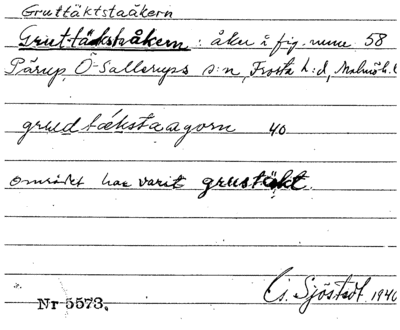 Gruttäktstaåkern
Gruttäckstaåkern : åker i fig. num 58
Pårup, Ö-Sallerups s:n, Frosta h:d, Malmöh. l.
grud tæksta agorn 40
området har varit grustäkt.
G. Sjöstedt 1940
Nr 5573.